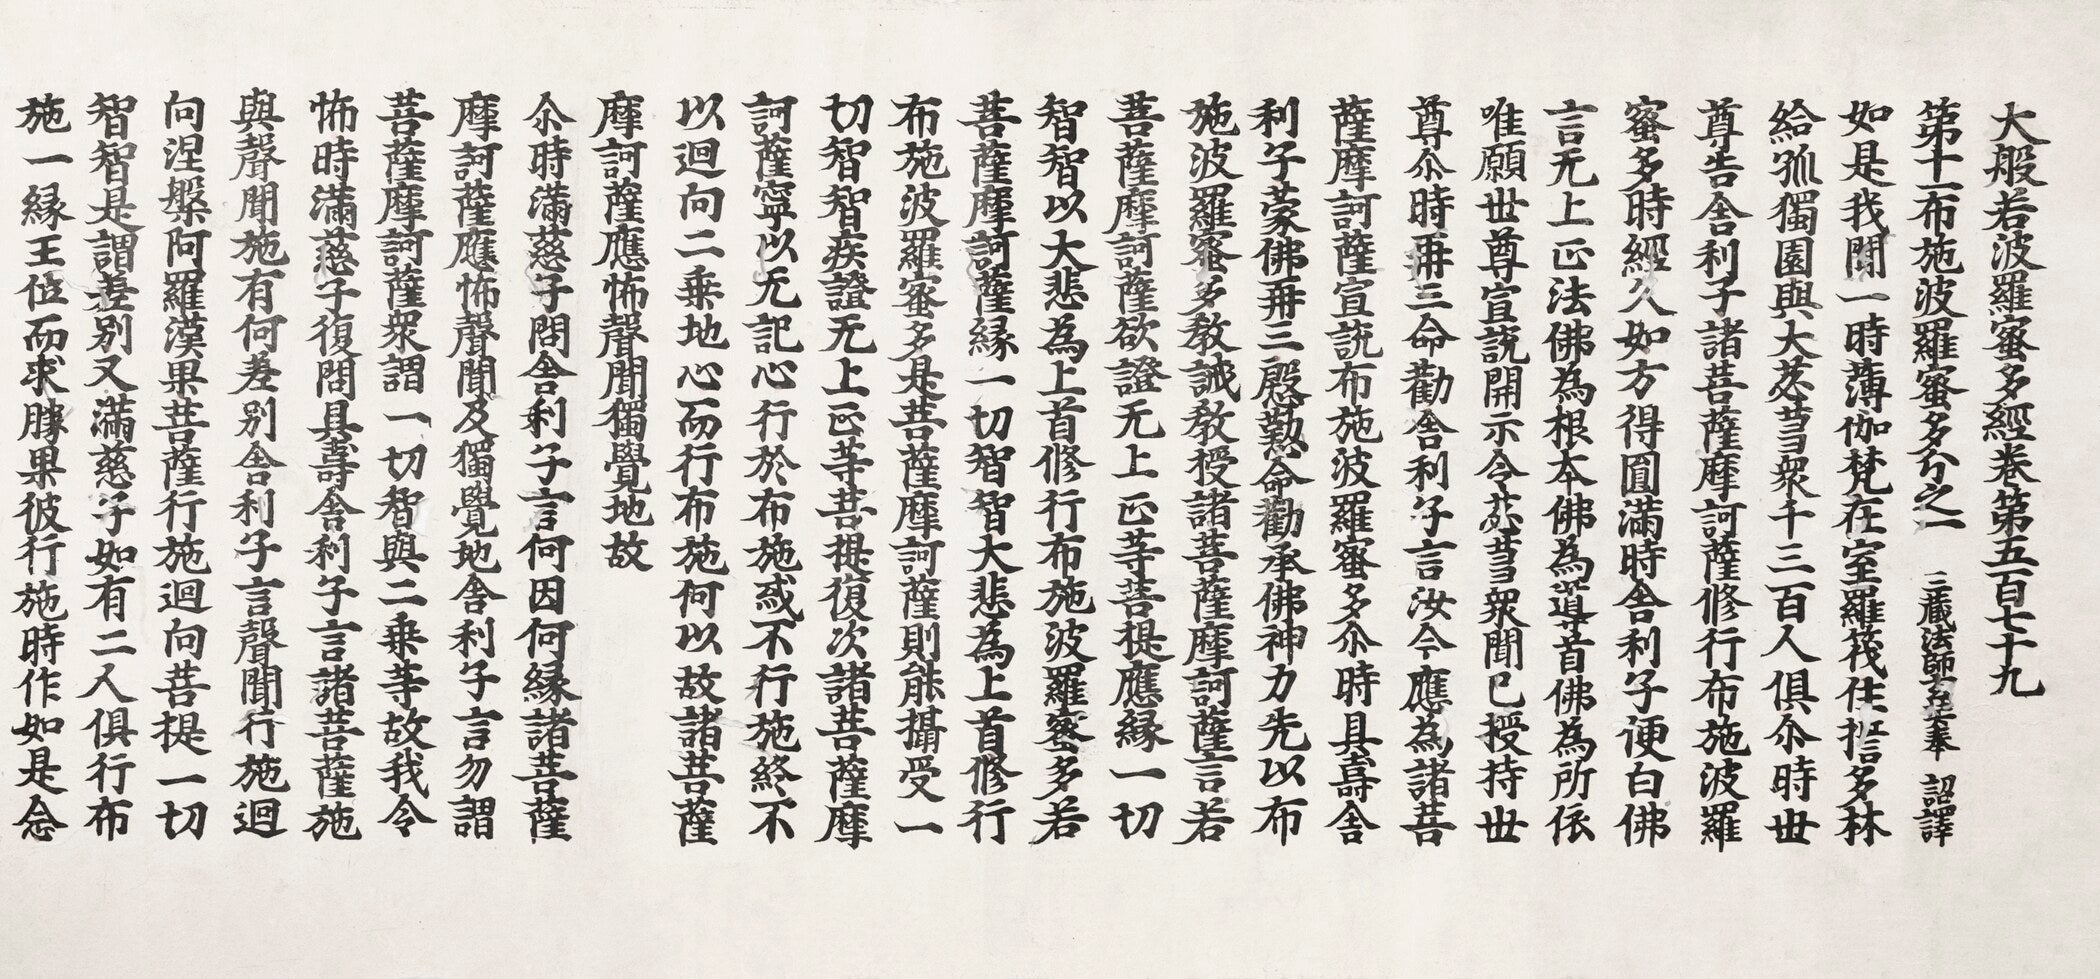 大般若波羅蜜多經卷第五百七十九
第十一布施波羅蜜多分之一 三藏法師玄奘奉 詔譯
如是我聞一時薄伽梵在室羅筏住誓多林
給孤獨園與大苾芻衆千三百人俱尒時世
尊告舍利子諸菩薩摩訶薩修行布施波羅
蜜多時經久如方得圓滿時舍利子便白佛
言无上正法佛為根本佛為導首佛為所依
唯願世尊宣說開示令苾芻衆聞已授持世
尊尒時再三命勸舍利子言汝今應為諸菩
薩摩訶薩宣說布施波羅蜜多尒時具壽舍
利子蒙佛再三慇懃命勸承佛神力先以布
施波羅蜜多教誡教授諸菩薩摩訶薩言若
菩薩摩訶薩欲證无上正等菩提應緣一切
智智以大悲為上首修行布施波羅蜜多若
菩薩摩訶薩緣一切智智大悲為上首修行
布施波羅蜜多是菩薩摩訶薩則能攝受一
切智智疾證无上正等菩提復次諸菩薩摩
訶薩寧以无記心行於布施或不行施終不
以迴向二乘地心而行布施何以故諸菩薩
摩訶薩應怖聲聞獨覺地故
尒時滿慈子問舍利子言何因何緣諸菩薩
摩訶薩應怖聲聞及獨覺地舍利子言勿謂
菩薩摩訶薩衆謂一切智與二乘等故我令
怖時滿慈子復問具壽舍利子言諸菩薩施
與聲聞施有何差別舍利子言聲聞行施迴
向涅槃阿羅漢果菩薩行施迴向菩提一切
智智是謂差別又滿慈子如有二人俱行布
施一緣王位而求勝果彼行施時作如是念